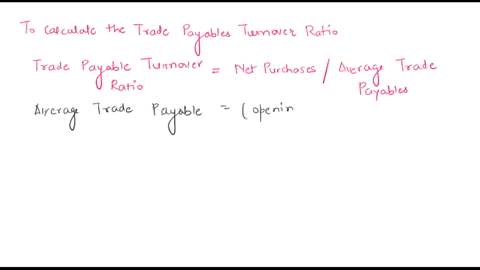 To Calculate the Trade Payables Turnover Ratio
Trade Payable Turnover Ratio = Net Purchases / Average Trade Payables
Average Trade Payable = (openin